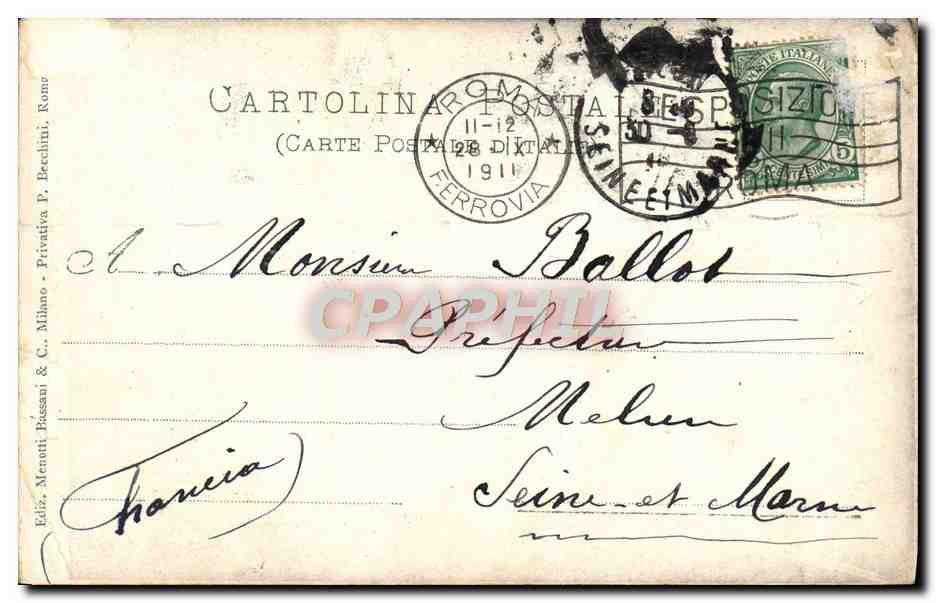 CARTOLINA POSTALE
(CARTE POSTALE D'ITALIE)
ROMA
11-12
28 IX
1911
FERROVIA
ESPOSIZIO
11
ROMA
SEINE ET MARNE
8
30
POSTE ITALIANE
5
A Monsieur Ballot
CPAPHIL
Préfecture
Melun
Seine-et Marne
(Francia)
Ediz. Menotti Bassani & C., Milano - Privativa P. Becchini, Roma